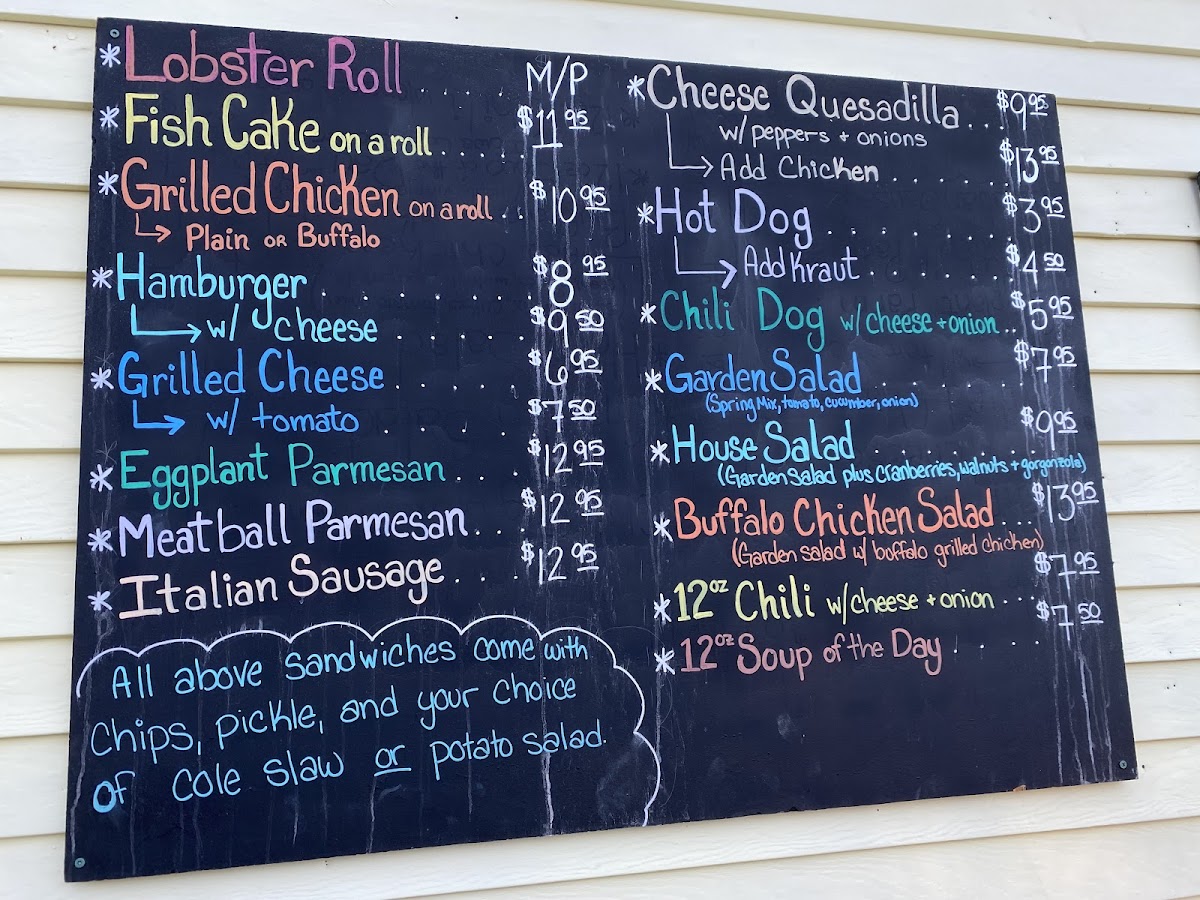 * Lobster Roll ..... M/P
* Fish Cake on a roll ..... $11.95
* Grilled Chicken on a roll .. $10.95
Plain or Buffalo
* Hamburger ........ $8.95
w/ cheese ..... $9.50
* Grilled Cheese ..... $6.95
w/ tomato ..... $7.50
* Eggplant Parmesan ... $12.95
* Meatball Parmesan ... $12.95
* Italian Sausage ... $12.95
All above sandwiches come with
chips, pickle, and your choice
of cole slaw or potato salad.
* Cheese Quesadilla ... $9.95
w/ peppers + onions
Add Chicken ...... $13.95
* Hot Dog ....... $3.95
Add Kraut ...... $4.50
* Chili Dog w/ cheese + onion .. $5.95
* Garden Salad ...... $7.95
(Spring Mix, tomato, cucumber, onion)
* House Salad ...... $9.95
(Garden Salad plus cranberries, walnuts + gorgonzola)
* Buffalo Chicken Salad ... $13.95
(Garden salad w/ buffalo grilled chicken)
* 12oz Chili w/ cheese + onion .. $7.95
* 12oz Soup of the Day .... $7.50